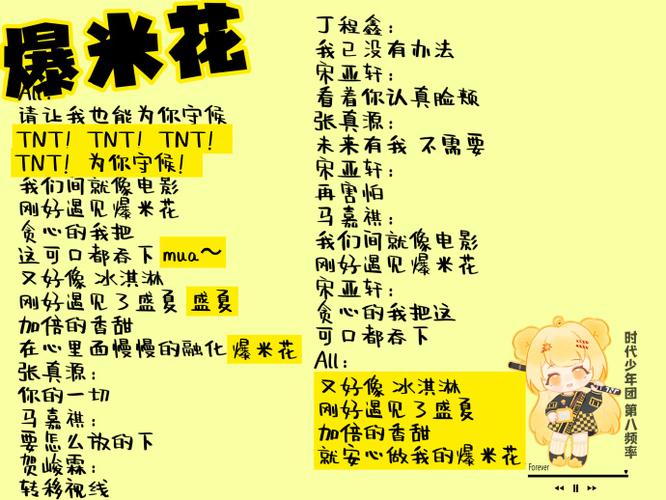 爆米花
All:
请让我也能为你守候
TNT! TNT! TNT!
TNT! 为你守候!
我们间就像电影
刚好遇见爆米花
贪心的我把
这可口都吞下 mua～
又好像 冰淇淋
刚好遇见了盛夏 盛夏
加倍的香甜
在心里面慢慢的融化 爆米花
张真源:
你的一切
马嘉祺:
要怎么放的下
贺峻霖:
转移视线
丁程鑫:
我已没有办法
宋亚轩:
看着你认真脸颊
张真源:
未来有我 不需要
宋亚轩:
再害怕
马嘉祺:
我们间就像电影
刚好遇见爆米花
宋亚轩:
贪心的我把这
可口都吞下
All:
又好像 冰淇淋
刚好遇见了盛夏
加倍的香甜
就安心做我的爆米花
时代少年团 第八频率
Forever